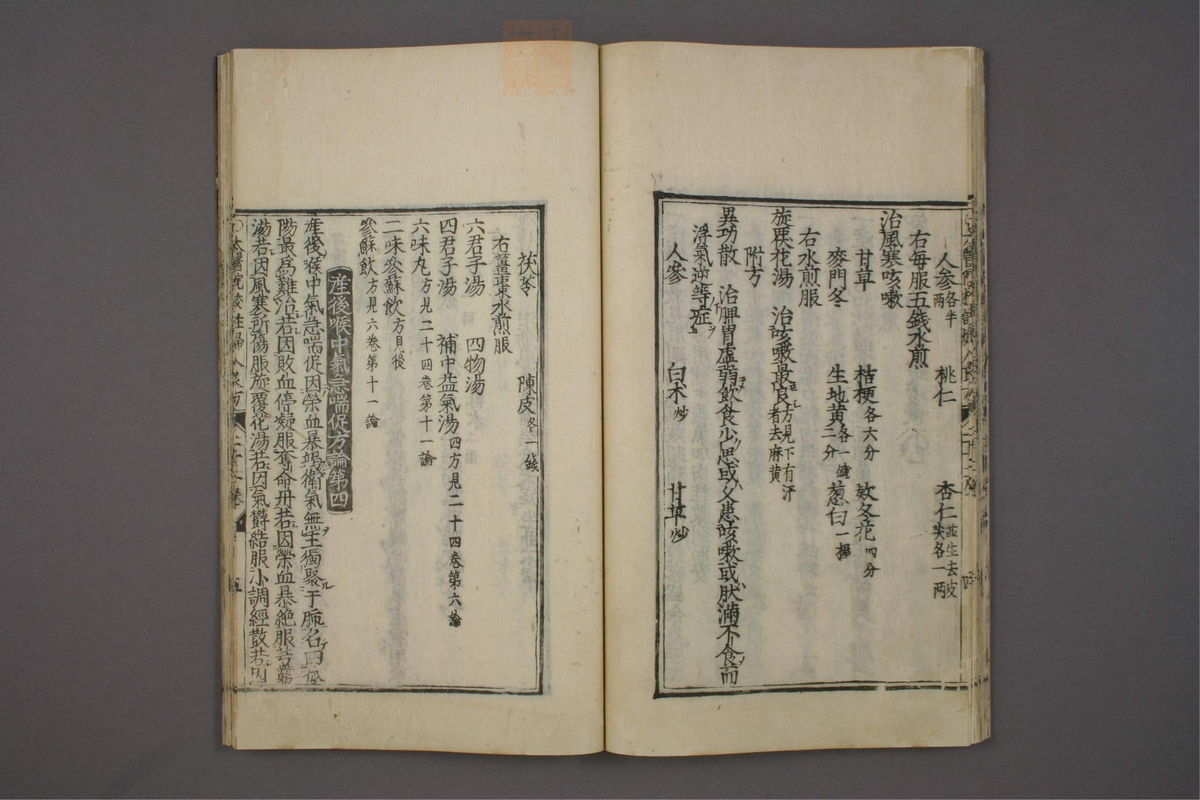 人参各半両 桃仁 杏仁並生去皮尖各一両
右毎服五錢水煎
治風寒咳嗽
甘草 桔梗各六分 欵冬花四分
麥門冬 生地黄各一錢二分 葱白一握
右水煎服
旋覆花湯 治咳嗽最良方見下有汗者去麻黄
附方
異功散 治脾胃虚弱飲食少思或久患咳嗽或腹滿不食而
浮氣逆等症
人參 白朮炒 甘草炒
茯苓 陳皮各一錢
右薑棗水煎服
六君子湯 四物湯
四君子湯 補中益氣湯四方見二十四卷第六論
六味丸方見二十四卷第十一論
二味參蘇飲方見後
參蘇飲方見六卷第十一論
産後喉中氣急喘促方論第四
産後喉中氣急喘促因榮血暴竭衛氣無主獨聚于肺名曰孤
陽最爲難治若因敗血停凝服奪命丹若因榮血暴絶服芎藭
湯若因風寒所傷服旋覆花湯若因氣欝結服小調經散若因